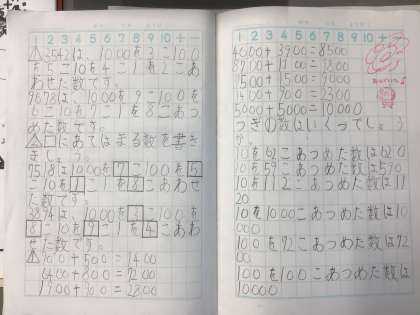 1 2 3 4 5 6 7 8 9 10 十 一
△3542は、1000を3こ100
を5こ10を4こ1を2こあ
わせた数です。
9678は、1000を9こ100を
6こ10を7こ1を8こあつ
めた数です。
△□にあてはまる数を書き
ましょう。
7518は1000を7こ100を5
こ10を1こ1を8こあわせ
た数です。
3874は、1000を3こ100を
8こ10を7こ1を4こあわ
せた数です。
△900+500=1400
6400+800=7200
1900+900=2800
1 2 3 4 5 6 7 8 9 10 十 一
4600+3900=8500
1500+1500=3000
5000+5000=10000
つぎの数はいくつでしょう
。
10を62こあつめた数は620
10を57こあつめた数は570
10を112こあつめた数は11
20
10を1000こあつめた数は10
000
100を72こあつめた数は72
00
100を100こあつめた数は
10000